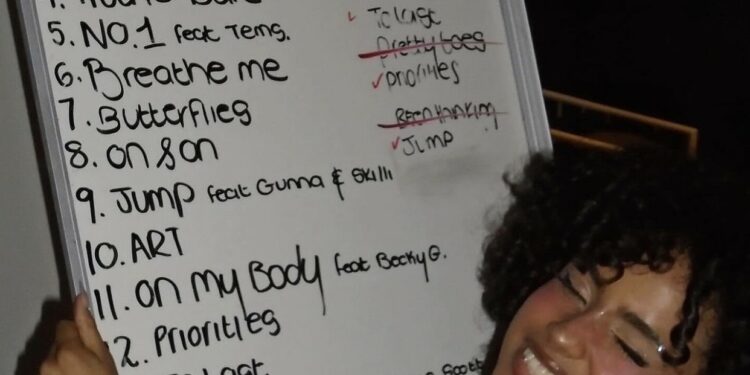 5. NO.1 feat Tems.
6. Breathe me
7. Butterflies
8. on & on
9. Jump feat Gunna & Skilli
10. ART
11. on my Body feat Becky G.
12. Priorities
To last
Pretty toes
✓ priorities
Been thinking
✓ Jump